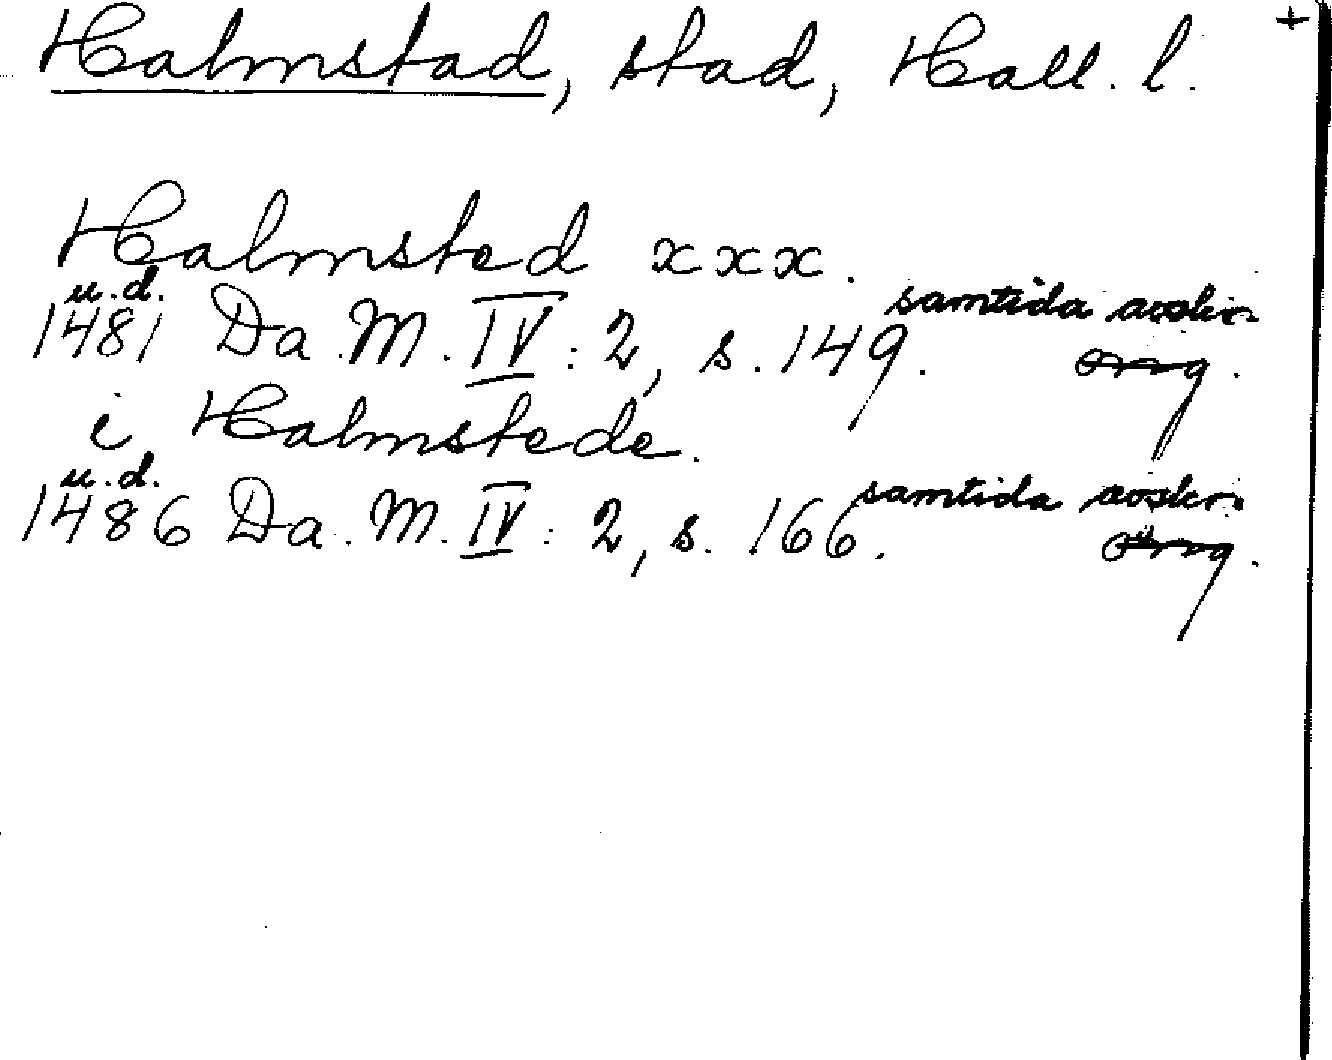 Halmstad, stad, Hall. l. +
Halmsted xxx.
u.d. samtida avskr.
1481 Da. M. IV: 2, s. 149. orig.
i Halmstede.
u.d. samtida avskr.
1486 Da. M. IV: 2, s. 166. orig.